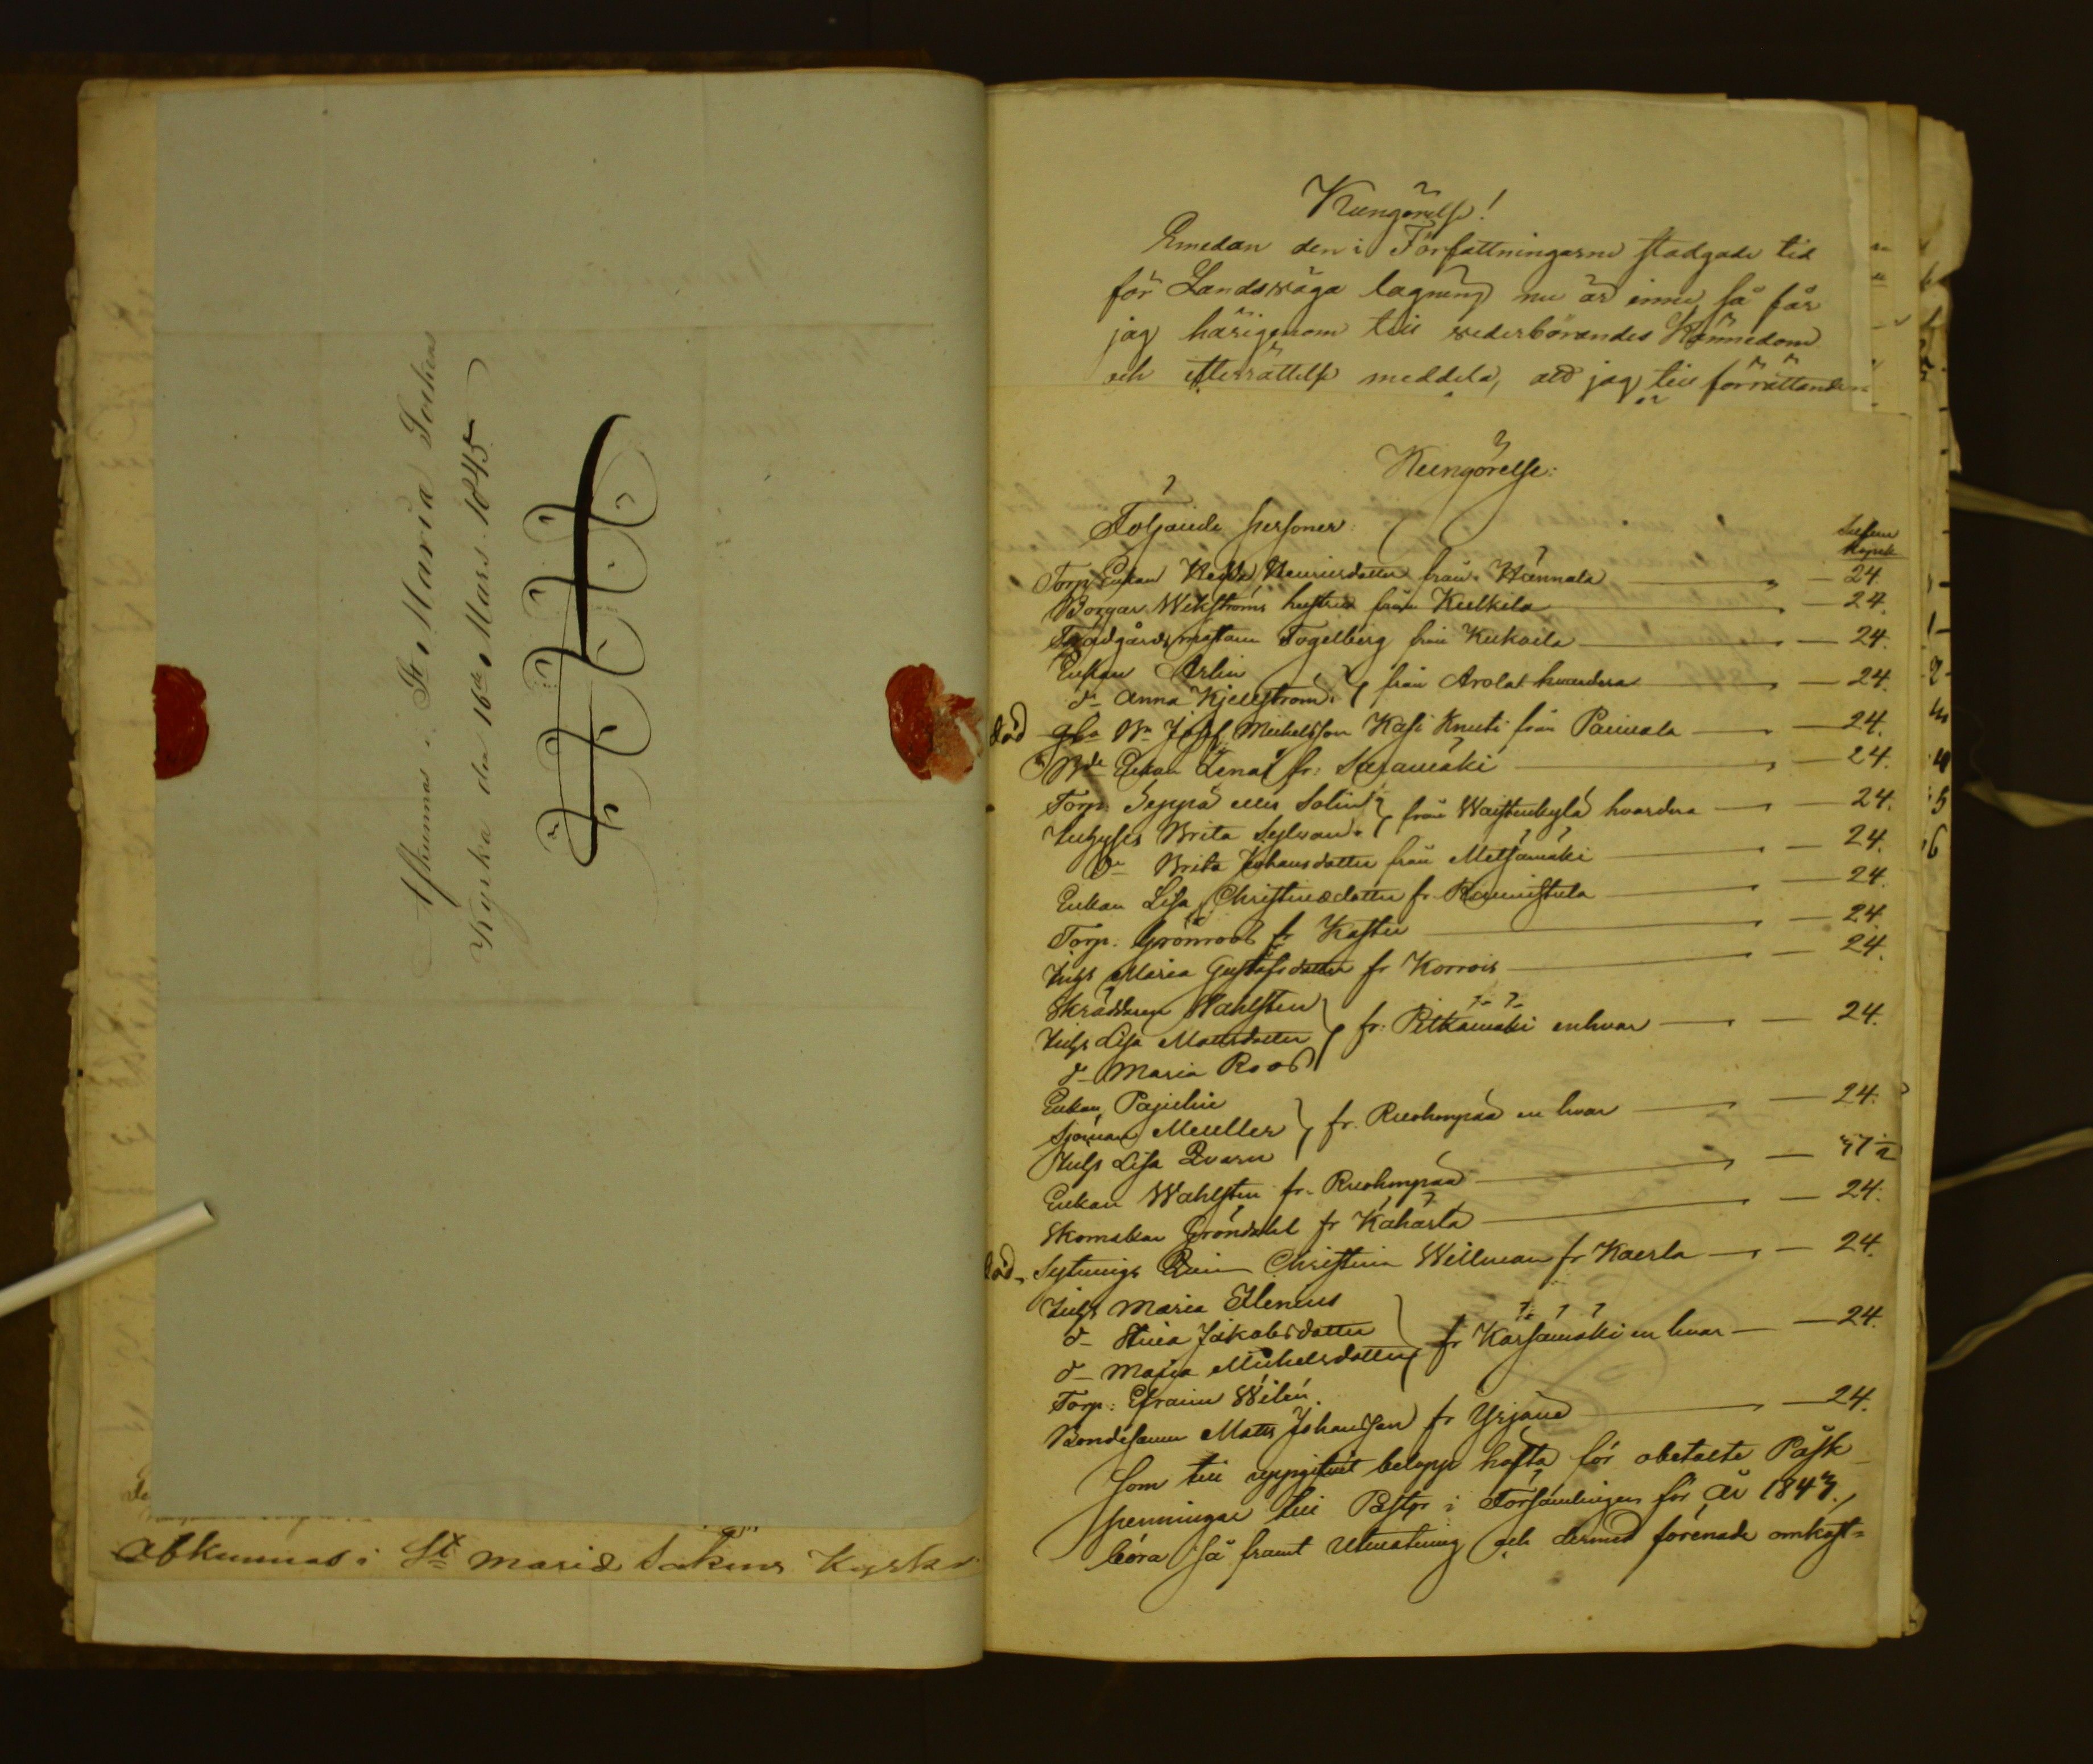 Afkunnas i St Maria Sockens
Kyrka den 16de Mars 1845
Abkunnas i St Mariæ Sokens Kyrka
Kungörelse!
Emedan den i Författningarne stadgade tid
för Landsväga lagning nu är inne, så får
jag härigenom till vederbörandes Kännedom
och efterrättelse meddela, att jag till förrättande
Kungörelse:
Följande personer:
Silfver
Kopek
Torp. Enkan Henricsdotter från Hännala — 24.
Borgar Wikströms hustru från Kulkila — 24.
Trädgårdsmästare Fogelberg från Kukola — 24.
Enkan Arlin
d:o Anna Kjellström } från Arola hvardera — 24.
död gla Bn Josef Michelsson Kasi Knuti från Paimala — 24.
Bde Enkan Lena fr: — 24.
Torp. Seppä eller Solin
Inhyses Brita Sylvan } från Waistenkylä hvardera — 24.
Do Brita Johansdotter från Metsämäki — 24.
Enkan Lisa Christinedotter fr. Raunistula — 24.
Torp. Grönroos fr Kastu — 24.
Inhs Maria Gustafsdotter fr Korrois — 24.
Skräddaren Wahlsten
Inhs Lisa Mattsdotter
d:o Maria Roos } fr: Pitkämäki enhvar — 24.
Enkan Pajulin
Sjöman Mueller
Inhs Lisa Qvarn } fr. Ruohonpää en hvar — 24.
Enkan Wahlsten fr. Ruohonpää — 57½
Skomakar Gröndahl fr Kähärlä — 24.
död. Sytnings Christina Willman fr Kaerla — 24.
Inhs Maria Elenius
d:o Stina Jakobsdotter
d:o Maria Michelsdotter } fr Kärsämäki en hvar — 24.
Torp: Efraim Wilén
Bondesonen Matts Johansson fr Yrjänä — 24.
Som till uppgifvit belopp häfta för obetalte Påsk-
penningar till Pastor i Församlingen för år 1843.
böra så framt utmätning och dermed förenade omkost=